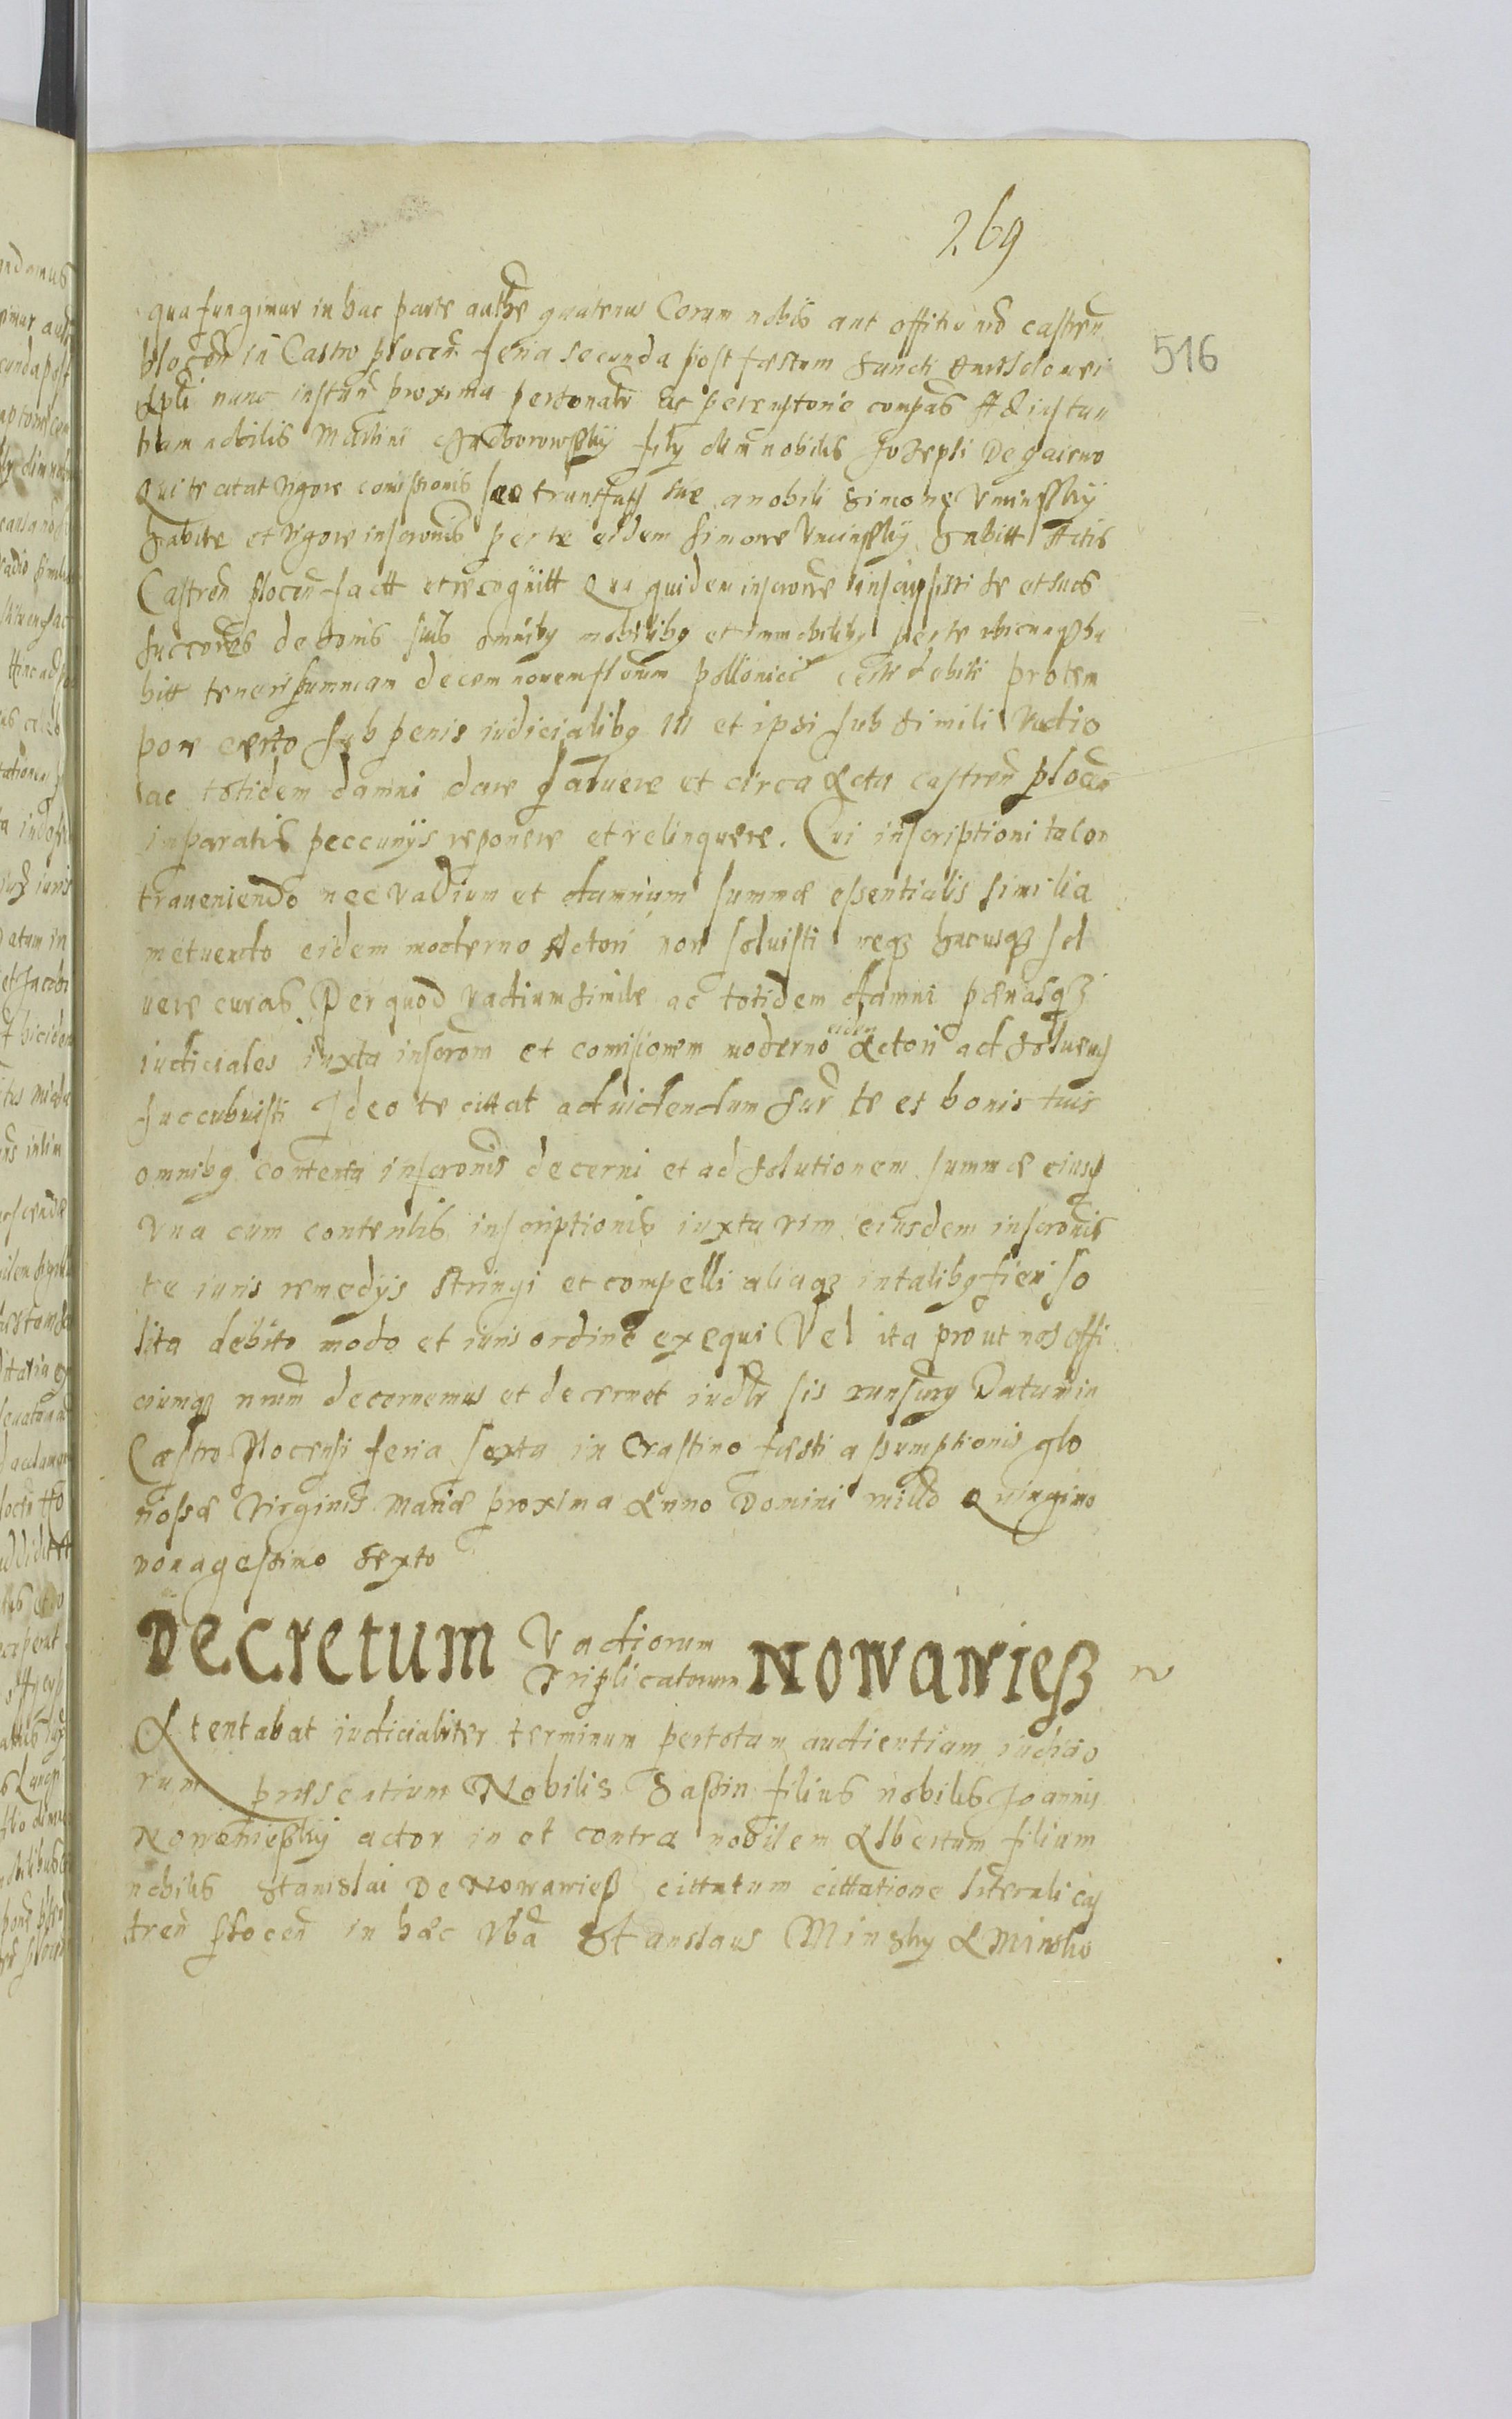 269
516
qua fungimur in hac parte authe quatenus Coram nobis aut offitio nro castren
plocen in Castro plocen feria secunda post festum Sancti Bartholomei
Apli nunc instan proxima personalr ac peremptorie compas Ad instan
tiam nobilis Martini filÿ olim nobilis Josephi De
Qui te citat vigore comissionis sue a nobili Simone Uminsskÿ
habite et vigore inscronis per te eidem Simone Uminsskÿ habitt Actis
Castren plocen factt et recognitt Qua quidem inscrone inscripsisti te et tuos
successores de bonis suis omnibg mobilibg et immobilibg per te ubicunqz ha
bitt teneri summam decem novem florum pollonicc certi debiti pro tem
pore certo sub penis iudicialibg III et ipsi sub simili vadio
ac totidem damni dare et circa Acta castren plocen
in paratis peccunÿs reponere et relinquere. Cui inscriptioni ta con
traveniendo nec vadium et damnum summæ essentialis similia
metuendo eidem moderno Actori non solvisti neqz hucusqz sol
vere curas Per quod vadium simile ac totidem damni pænasqz
iudiciales iuxta inscrom et comissionem moderno eidem Actori ad solvend
succubuisti Ideo te cittat ad videndum supr te et bonis tuis
omnibg contenta inscronis decerni et ad solutionem summæ eiusd
una cum contentis inscriptionis iuxta vim eiusdem inscronis
te iuris remedÿs stringi et compelli aliaqz in talibg fieri so
lita debito modo et iuris ordine exequi Vel ita prout nos offi
ciumqz nrum decernemus et decernet iudlr sis runsurg Datum in
Castro Plocensi feria sexta in Crastino festi assumptionis glo
riossæ Virginis Mariæ proxima Anno Domini millo Quingmo
nonagessimo sexto
Decretum Vadiorum Triplicatorum Nowawiesz
Attentabat iudicialiter terminum per totam audientiam iudicio
rum præsentium Nobilis filius nobilis Joannis
Nowowiesskÿ actor in et contra nobilem Albertum filium
nobilis Stanislai De Nowawiesz cittatum cittatione literali cas
tren plocen in hæc vba Stanislaus Minsky A Minsko